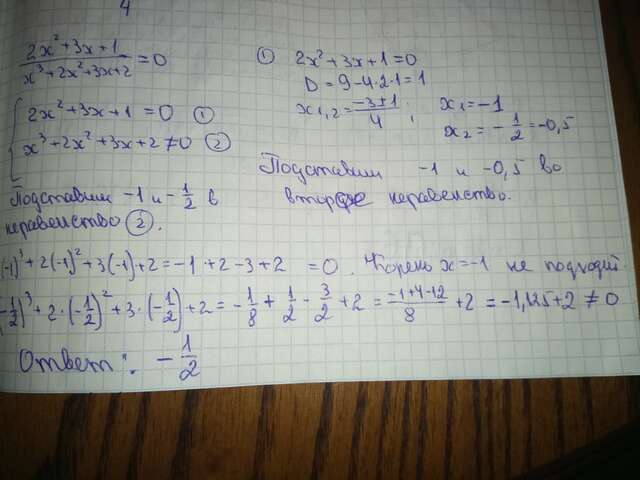 4
(2x²+3x+1)/(x³+2x²+3x+2) = 0
{ 2x²+3x+1 = 0 ①
x³+2x²+3x+2 ≠ 0 ②
Подставим -1 и -1/2 в
неравенство ②.
① 2x²+3x+1=0
D = 9-4·2·1=1
x₁,₂ = (-3±1)/4 ; x₁ = -1
x₂ = -1/2 = -0,5
Подставим -1 и -0,5 во
второе неравенство.
(-1)³ + 2(-1)² + 3(-1) + 2 = -1 + 2 - 3 + 2 = 0. Корень x=-1 не подходит.
(-1/2)³ + 2·(-1/2)² + 3·(-1/2) + 2 = -1/8 + 1/2 - 3/2 + 2 = (-1+4-12)/8 + 2 = -1,125+2 ≠ 0
Ответ: -1/2